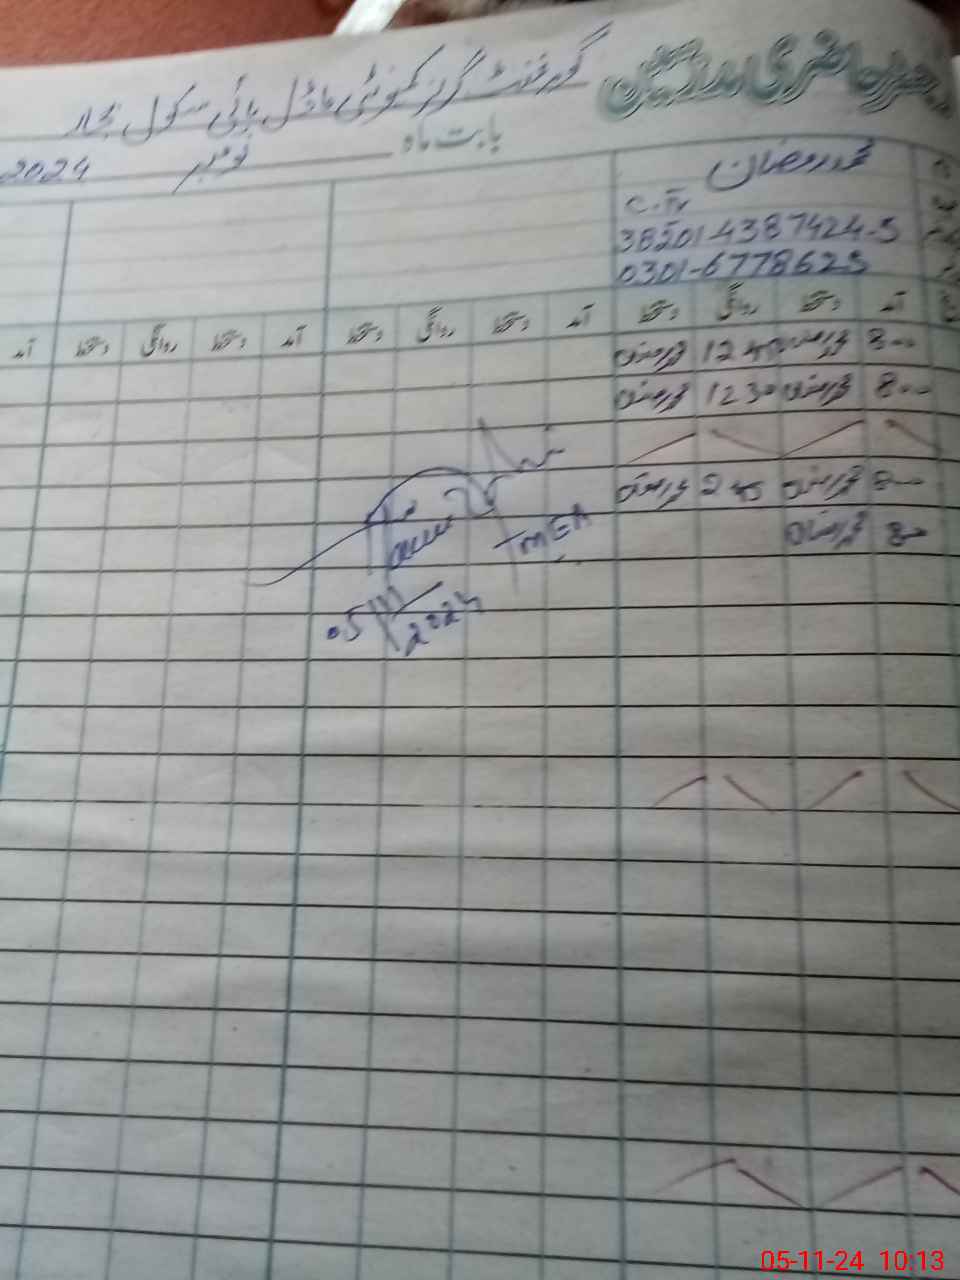 رجسٹر حاضری مدرسین
گورنمنٹ گرلز کمیونٹی ماڈل ہائی سکول بجار
بابت ماہ نومبر 2024
محمد رمضان
C.Tr
38201-4387424-5
0301-6778625
آمد دستخط روانگی دستخط آمد دستخط روانگی دستخط آمد دستخط روانگی دستخط آمد
800 محمد رمضان 12 45 محمد رمضان
800 محمد رمضان 12 30 محمد رمضان
800 محمد رمضان 2 45 محمد رمضان
800 محمد رمضان
MEA
05/11/2024
05-11-24 10:13